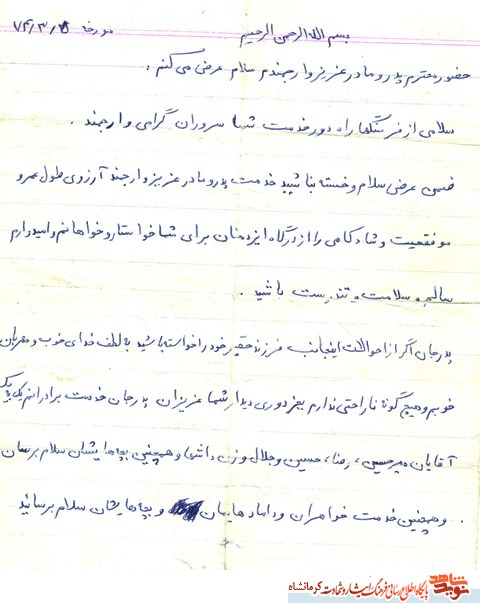 بسم الله الرحمن الرحیم
مورخهٔ ۷۴/۳/۵
حضور محترم پدر و مادر عزیز و ارجمندم سلام عرض می کنم .
سلامی از فرسنگها راه دور خدمت شما سروران گرامی و ارجمند .
ضمن عرض سلام و خسته نباشید خدمت پدر و مادر عزیز و ارجمند آرزوی طول عمر و
موفقیت و شادکامی را از درگاه ایزد منان برای شما خواستار و خواهانم و امیدوارم
سالم و سلامت و تندرست باشید .
پدر جان اگر از احوالات اینجانب فرزند حقیر خود را خواسته باشید به لطف خدای خوب و مهربان
خوبم و هیچ گونه ناراحتی ندارم بجز دوری دیدار شما عزیزان پدر جان خدمت برادرانم یکی یکی
آقایان میرحسین ، رضا ، حسین و جلال و زن داشها و همچنین بچه هایشان سلام برسان
. و همچنین خدمت خواهران و دامادهایمان و بچه هایشان سلام برسانید
نوید شاهد
پایگاه اطلاع رسانی فرهنگ ایثار و شهادت کرمانشاه